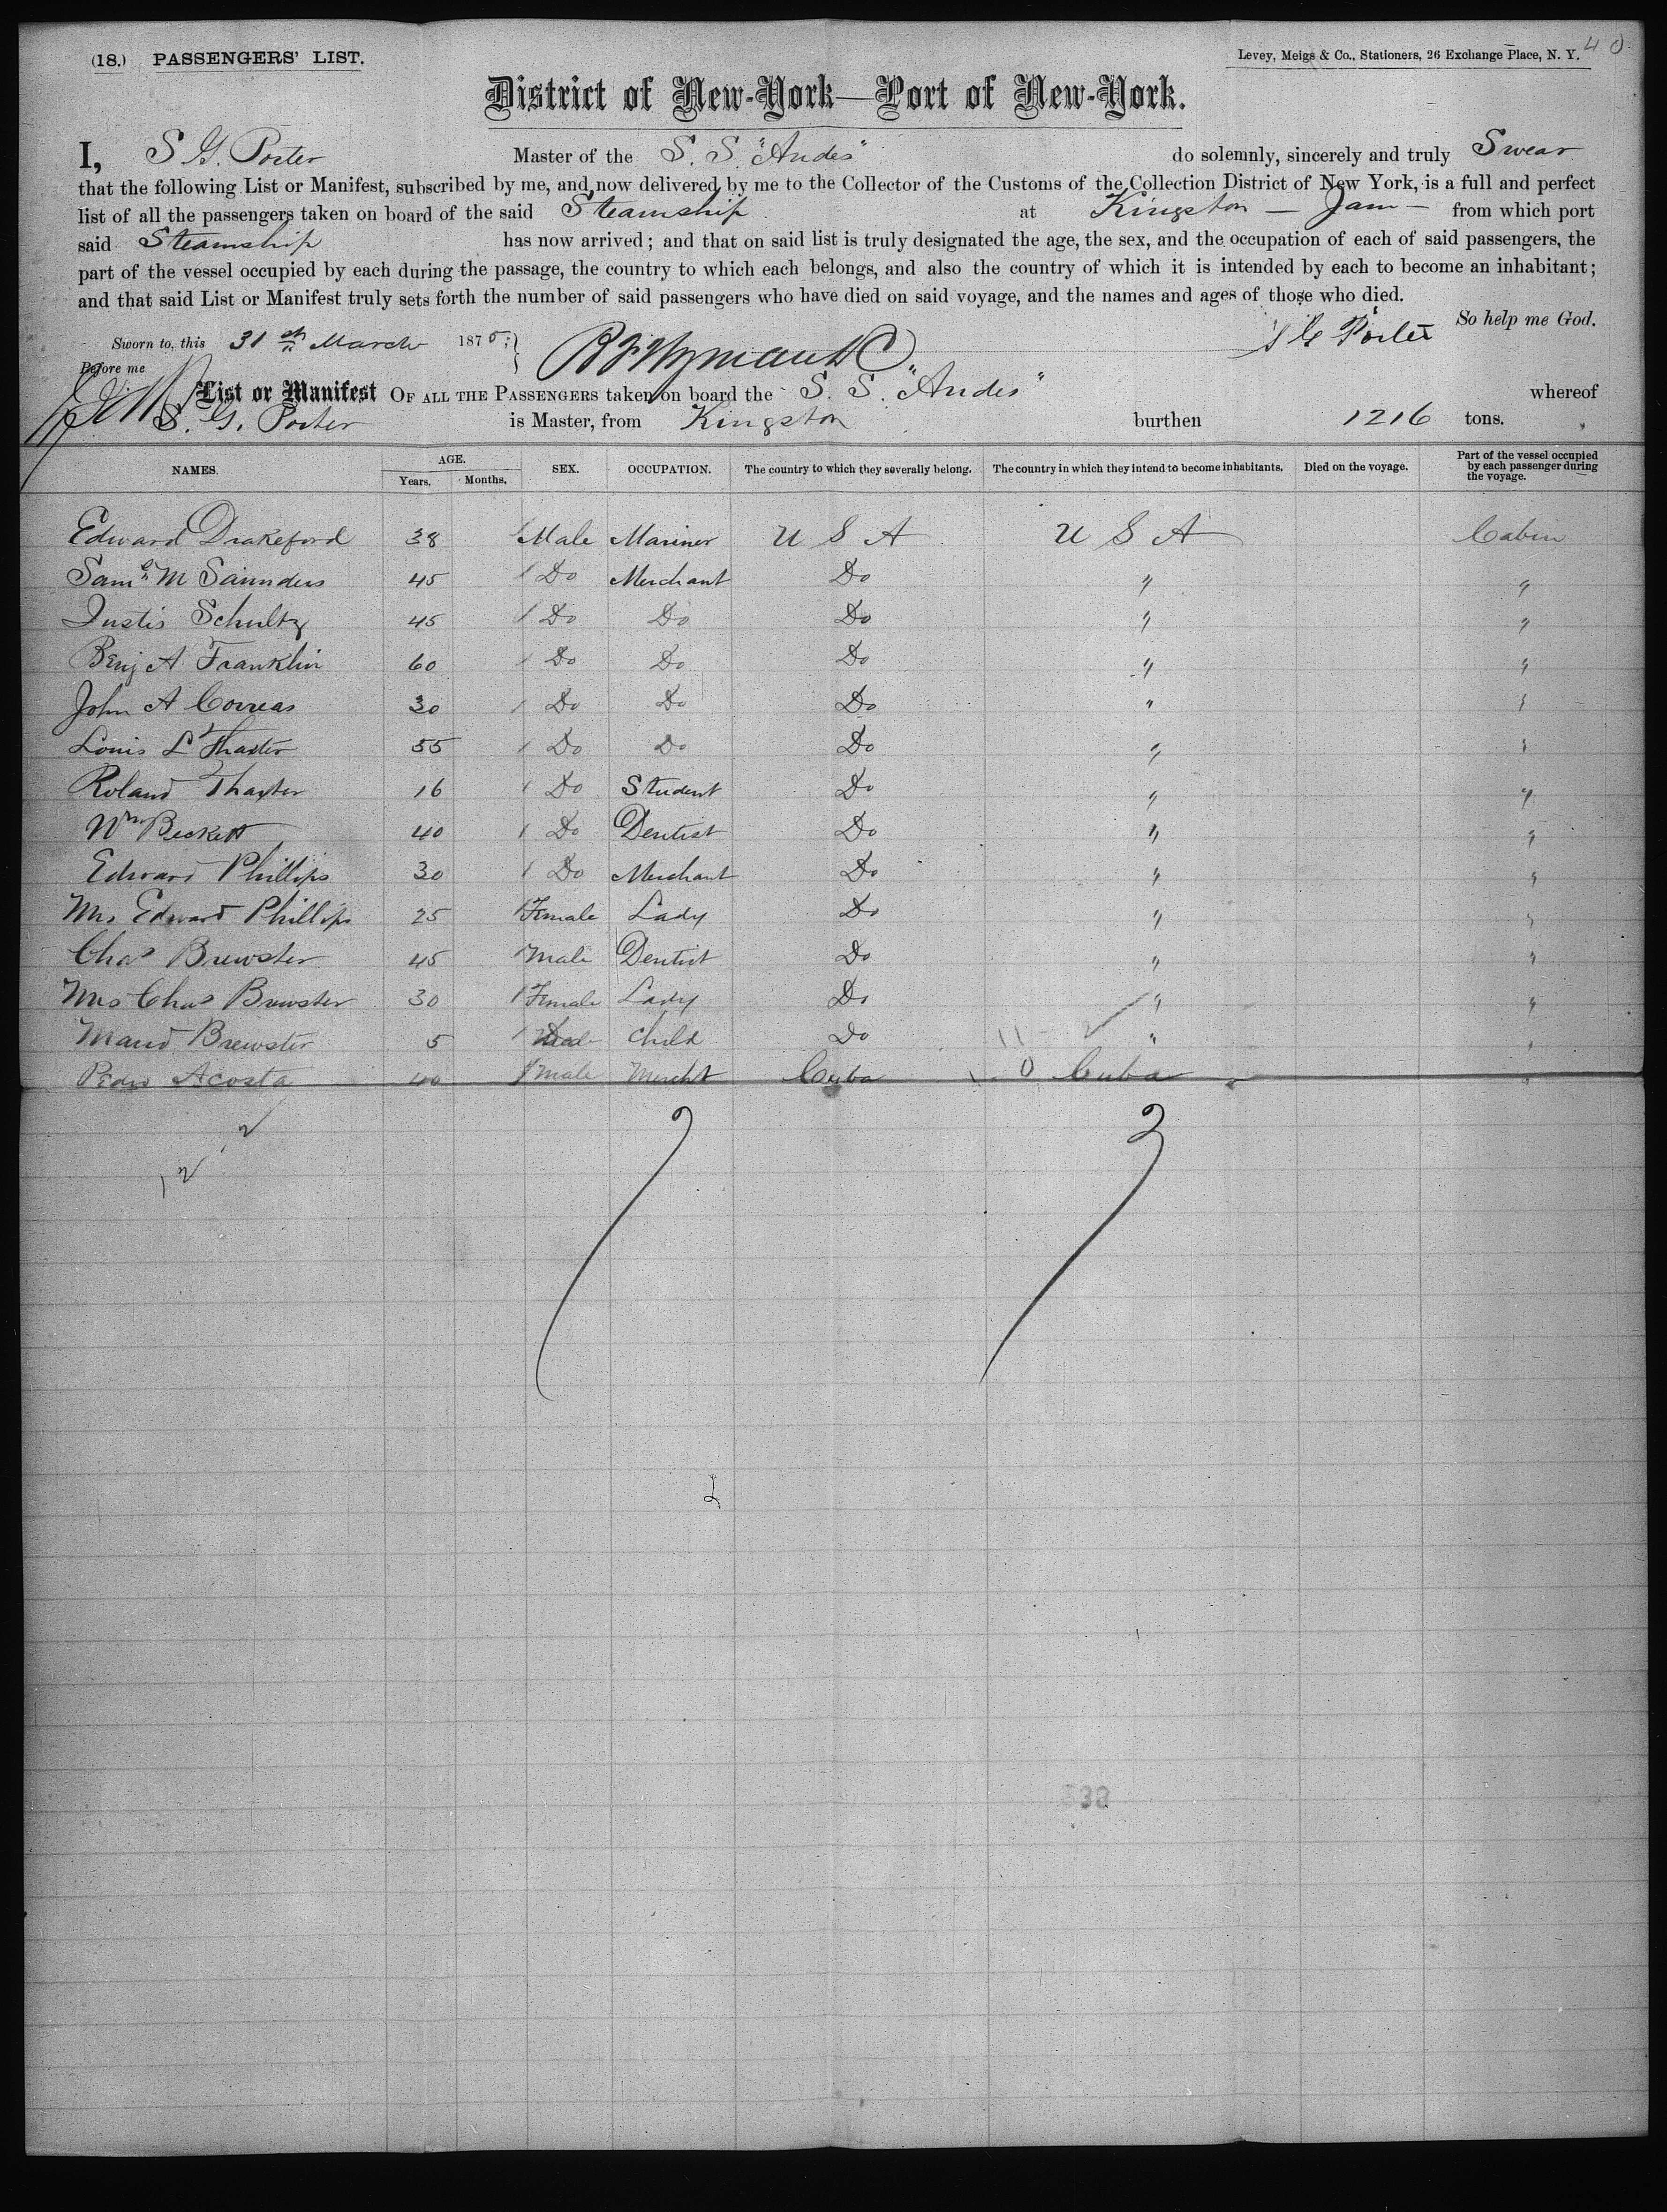 (18.) PASSENGERS' LIST.
Levey, Meigs & Co., Stationers, 26 Exchange Place, N. Y.
40
District of New-York—Port of New-York.
I, S G. Porter Master of the S. S. "Andes" do solemnly, sincerely and truly Swear
that the following List or Manifest, subscribed by me, and now delivered by me to the Collector of the Customs of the Collection District of New York, is a full and perfect
list of all the passengers taken on board of the said Steamship at Kingston — Jam — from which port
said Steamship has now arrived; and that on said list is truly designated the age, the sex, and the occupation of each of said passengers, the
part of the vessel occupied by each during the passage, the country to which each belongs, and also the country of which it is intended by each to become an inhabitant;
and that said List or Manifest truly sets forth the number of said passengers who have died on said voyage, and the names and ages of those who died.
So help me God.
Sworn to, this 31st March 1875 S G Porter
Before me
List or Manifest OF ALL THE PASSENGERS taken on board the S. S. "Andes" whereof
S. G. Porter is Master, from Kingston burthen 1216 tons.
NAMES. AGE. Years. Months. SEX. OCCUPATION. The country to which they severally belong. The country in which they intend to become inhabitants. Died on the voyage. Part of the vessel occupied by each passenger during the voyage.
Edward Drakeford 38 1 Male Mariner U S A U S A Cabin
Saml M Saunders 45 1 Do Merchant Do " "
Justis Schultz 45 1 Do Do Do " "
Benj A Franklin 60 1 Do Do Do " "
John A Correas 30 1 Do Do Do " "
Louis L Thaxter 55 1 Do Do Do " "
Roland Thaxter 16 1 Do Student Do " "
Wm Beckett 40 1 Do Dentist Do " "
Edward Phillips 30 1 Do Merchant Do " "
Mrs Edward Phillips 25 1 Female Lady Do " "
Chas Brewster 45 1 Male Dentist Do " "
Mrs Chas Brewster 30 1 Female Lady Do " "
Maud Brewster 5 1 child Do " "
Pedro Acosta 40 1 male Mercht Cuba Cuba "